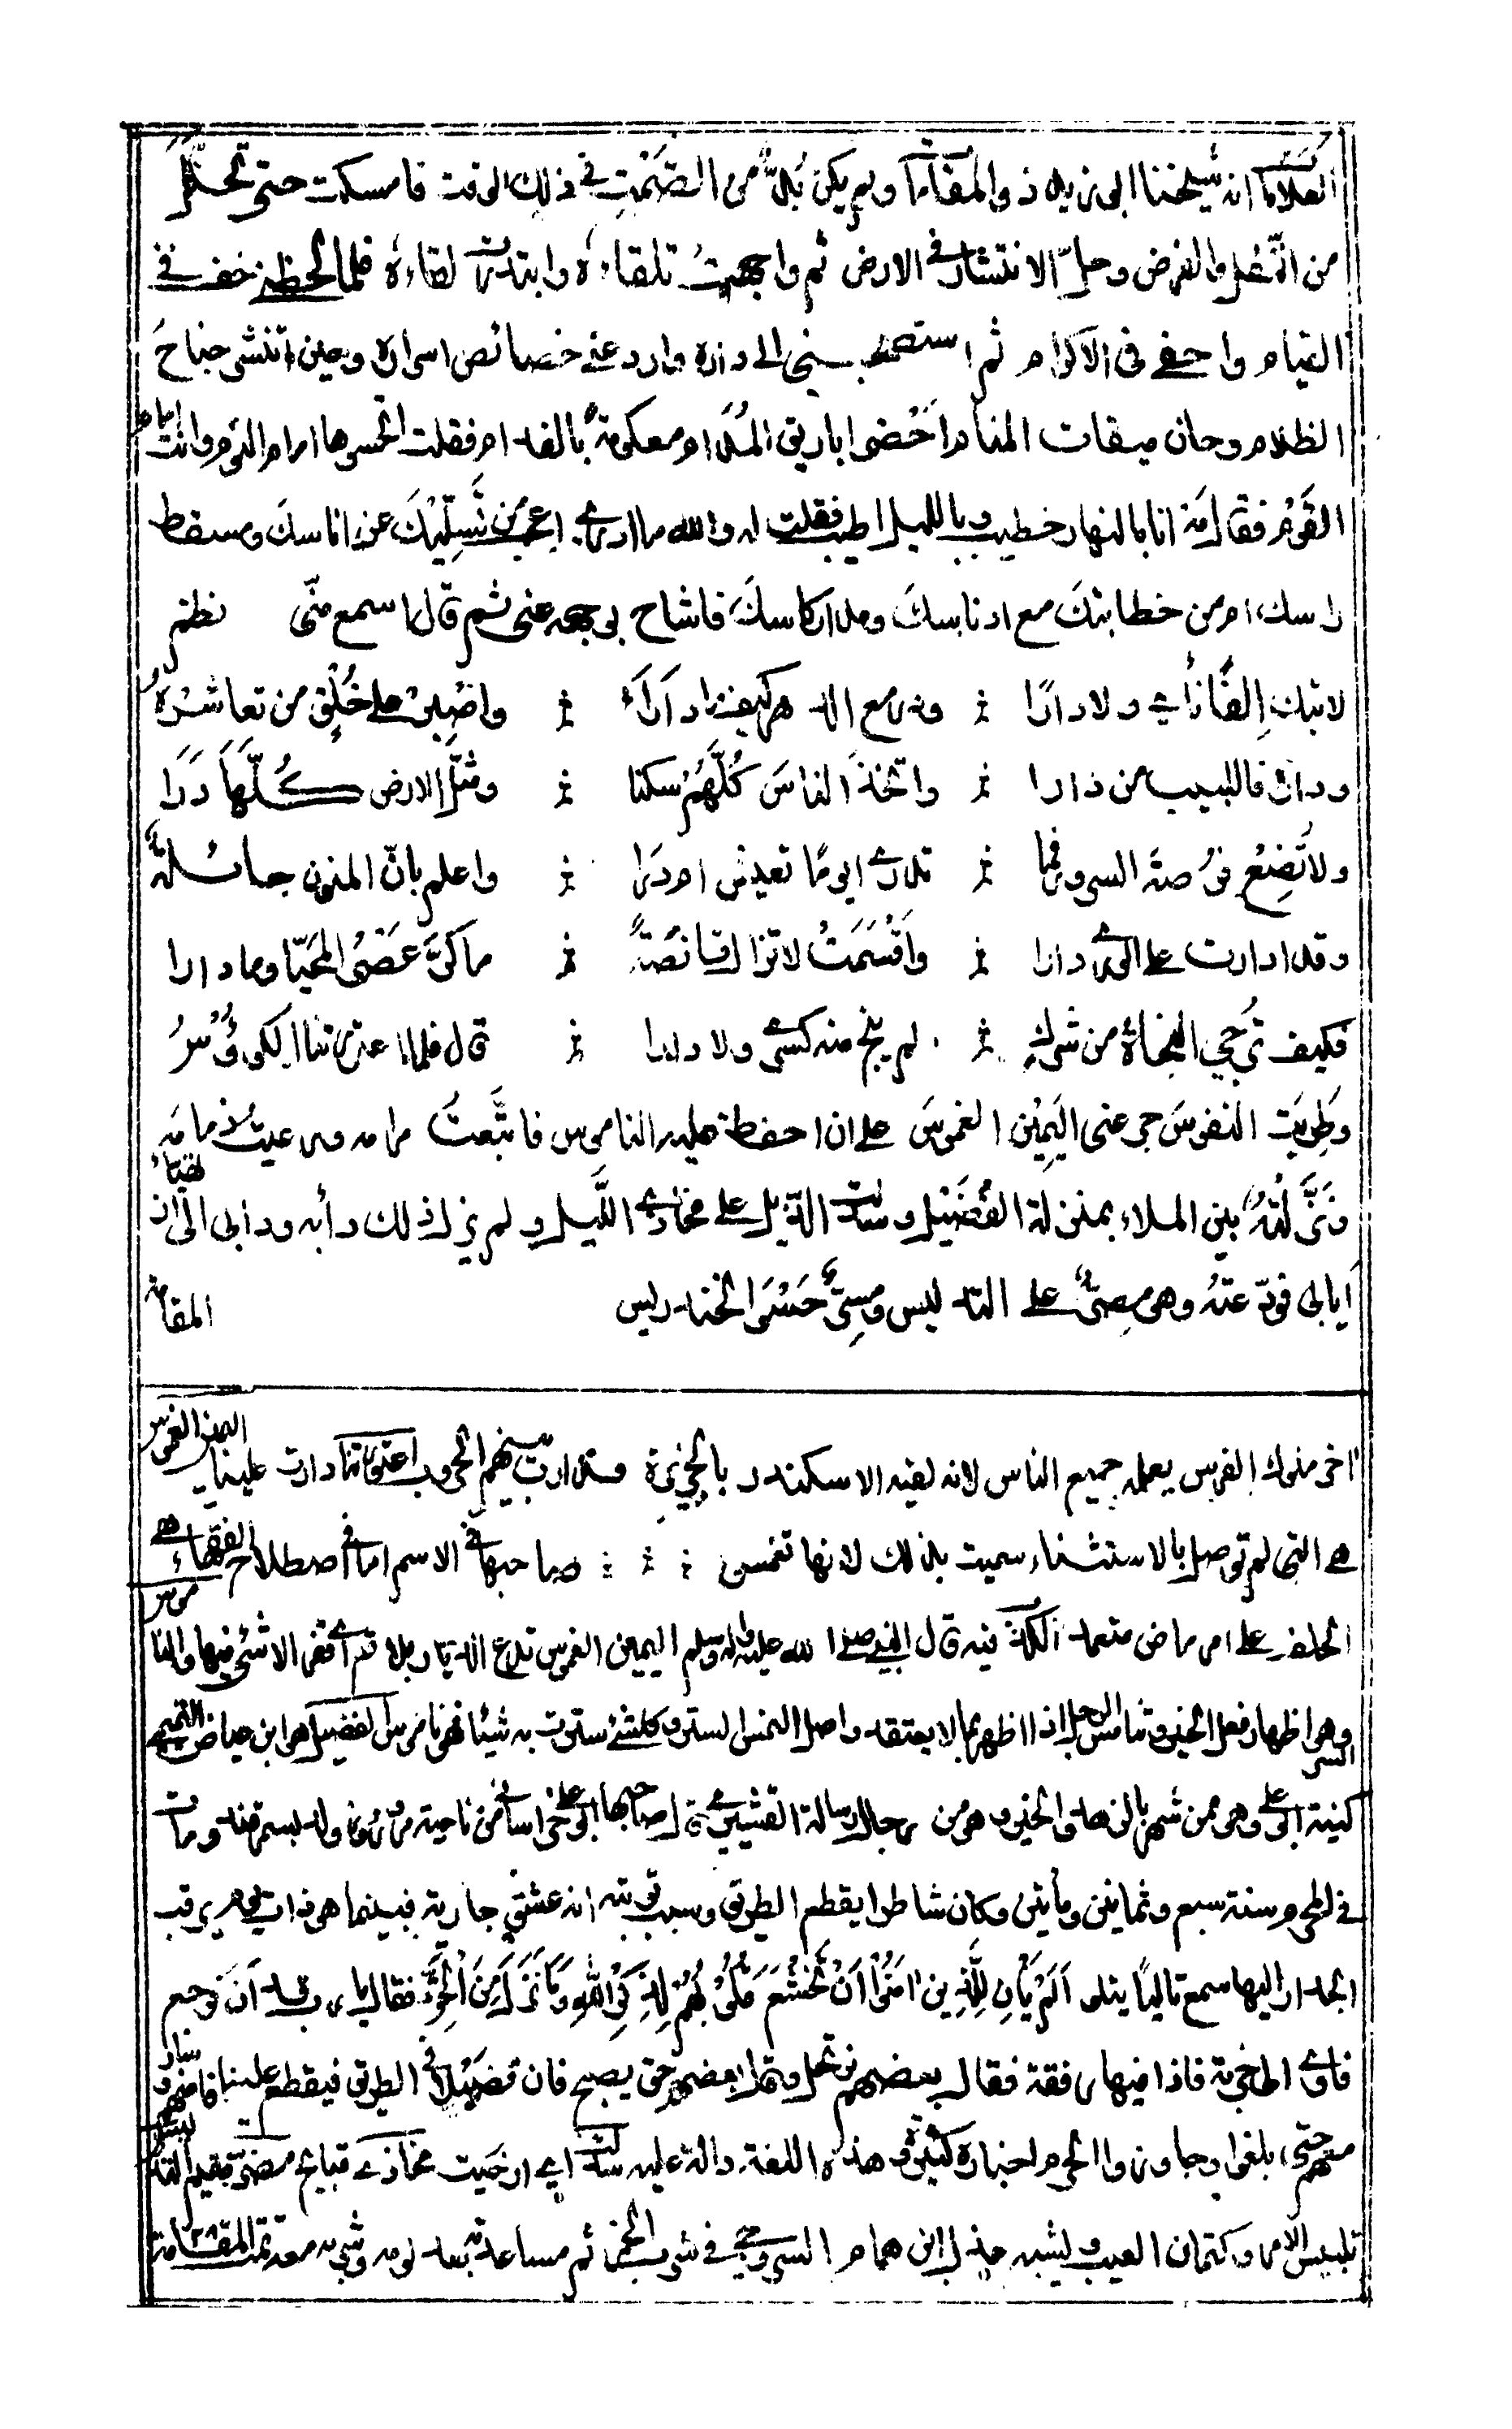 العلاما انه شيخنا ابو زيد ذو المقاما ولم يكن بدٌّ من الصَّمتِ في ذلك الوقت فامسكت حتى تحلل
من النَّفل والفرض وحلّ الانتشار في الارض ثم واجهتُ تلقاءه وابتدرت لقاءه فلما لحظني خف في
القيام واحفى فى الاكرام ثم استصحبني الى داره واودعني خصائص اسراره وحين انتشر جناح
الظلام وحان ميقات المنام احضر اباريق المدام معكومةً بالفدام فقلت اتحسوها امام النوم وانت امام
القوم فقال مه انا بالنهار خطيب وبالليل اطيب فقلت له والله ما ادري اعجب من تسلِّيْكَ عن اناسك ومسقط
راسك، ام من خطابتك مع ادناسك ومدار كاسك فاشاح بوجهه عني ثم قال اسمع منّى نظم
لا تبك إلفًا نأى ولا دارًا ودر مع الدهر كيفما دارا واصْبِرْ على خُلْقِ من تعاشرُه
وداره فاللبيب من دارا واتخذ الناسَ كُلَّهُمْ سكنا ومثّل الارض كُلَّها دَرَا
ولا تُضِعْ فُرصة السرور فما تدرى ايومًا تعيش ام درا واعلم بانّ المنون جائلة
وقد ادارت على الورى دارا واقْسَمَتْ لا تزال قانصةً ما كرَّ عَصْرُ المَحْيَا وما دارا
فكيف تُرجى النجاةُ من شركٍ لم ينج منه كسرى ولا دارا قال فلما اعتورتنا الكؤوسُ
وطربت النفوسُ جرعنى اليَمِيْن الغموسَ على ان احفظ عليه الناموس فاتَّبعتُ مرامه ورعيتُ ذمامه
ونَزَّلْتُهُ بين الملاء بمنزلة الفُضَيْل وسدلت الذيل على مخازى اللَّيل ولم يزل ذلك دأبه ودأبى الى ان تهيأ
ايابى فودّعتهُ وهو مصرٌّ على التدليس ومسرٌّ حَسْوَ الخندريس المقامة
اخر ملوك الفرس يعمل جميع الناس لانه لقيه الاسكندر بالجزيرة ودارت بينهم الحروب اعتورتنا دارت علينا اليمين الغموس
هي التى لم توصل بالاستثناء سميت بذلك لانها تغمس صاحبها في الاسم اما في اصطلاح الفقهاء هي
الحلف على امر ماض متعمد الكذب فيه قال النبي صلى الله عليه واله وسلم اليمين الغموس تدع الديار بلاقع اى قفرا لا شئ فيها والناموس
وهو اظهار فعل الخير ونامس الرجل اذا اظهر بما لا يعتقد واصل النمس الستر وكل شئ سترت به شيئا فهو ناموس الفضيل هو ابن عياض التميمي
كنية ابو على وهو ممن شهر بالزهد والخير وهو من رجال رسالة القشيرى قال صاحبها ابو على خراسانى من ناحية مرو ولد بسمرقند ومات
في المحرم سنة سبع وثمانين ومأتين وكان شاطرا يقطع الطريق وسبب توبته انه عشق جارية فبينما هو ذات يوم يرقب
الجدار اليها سمع تاليًا يتلو اَلَمْ يَأْنِ لِلَّذِينَ اٰمَنُوْا اَنْ تَخْشَعَ قُلُوْبُهُمْ لِذِكْرِ اللهِ وَمَا نَزَلَ مِنَ الْحَقِّ فقال يارب قد آن فرجع
فاوى الى خربة فاذا فيها رفقة فقال بعضهم نرتحل وقال بعضهم حتى يصبح فان فضيلا فى الطريق فيقطع علينا فامنهم وسار
معهم حتى بلغوا وجاوزوا الحرم اخباره كثيرة وهذه اللفظة دالة عليه سدلت اى ارخيت مخازى قبائح مصر مقيم التدليس
تلبيس الامر وكتمان العيب وليشبه حذل ابن همام السروجي في شرب الخمر ثم مساعدته بعد لومه وشربه معه تمت المقامة